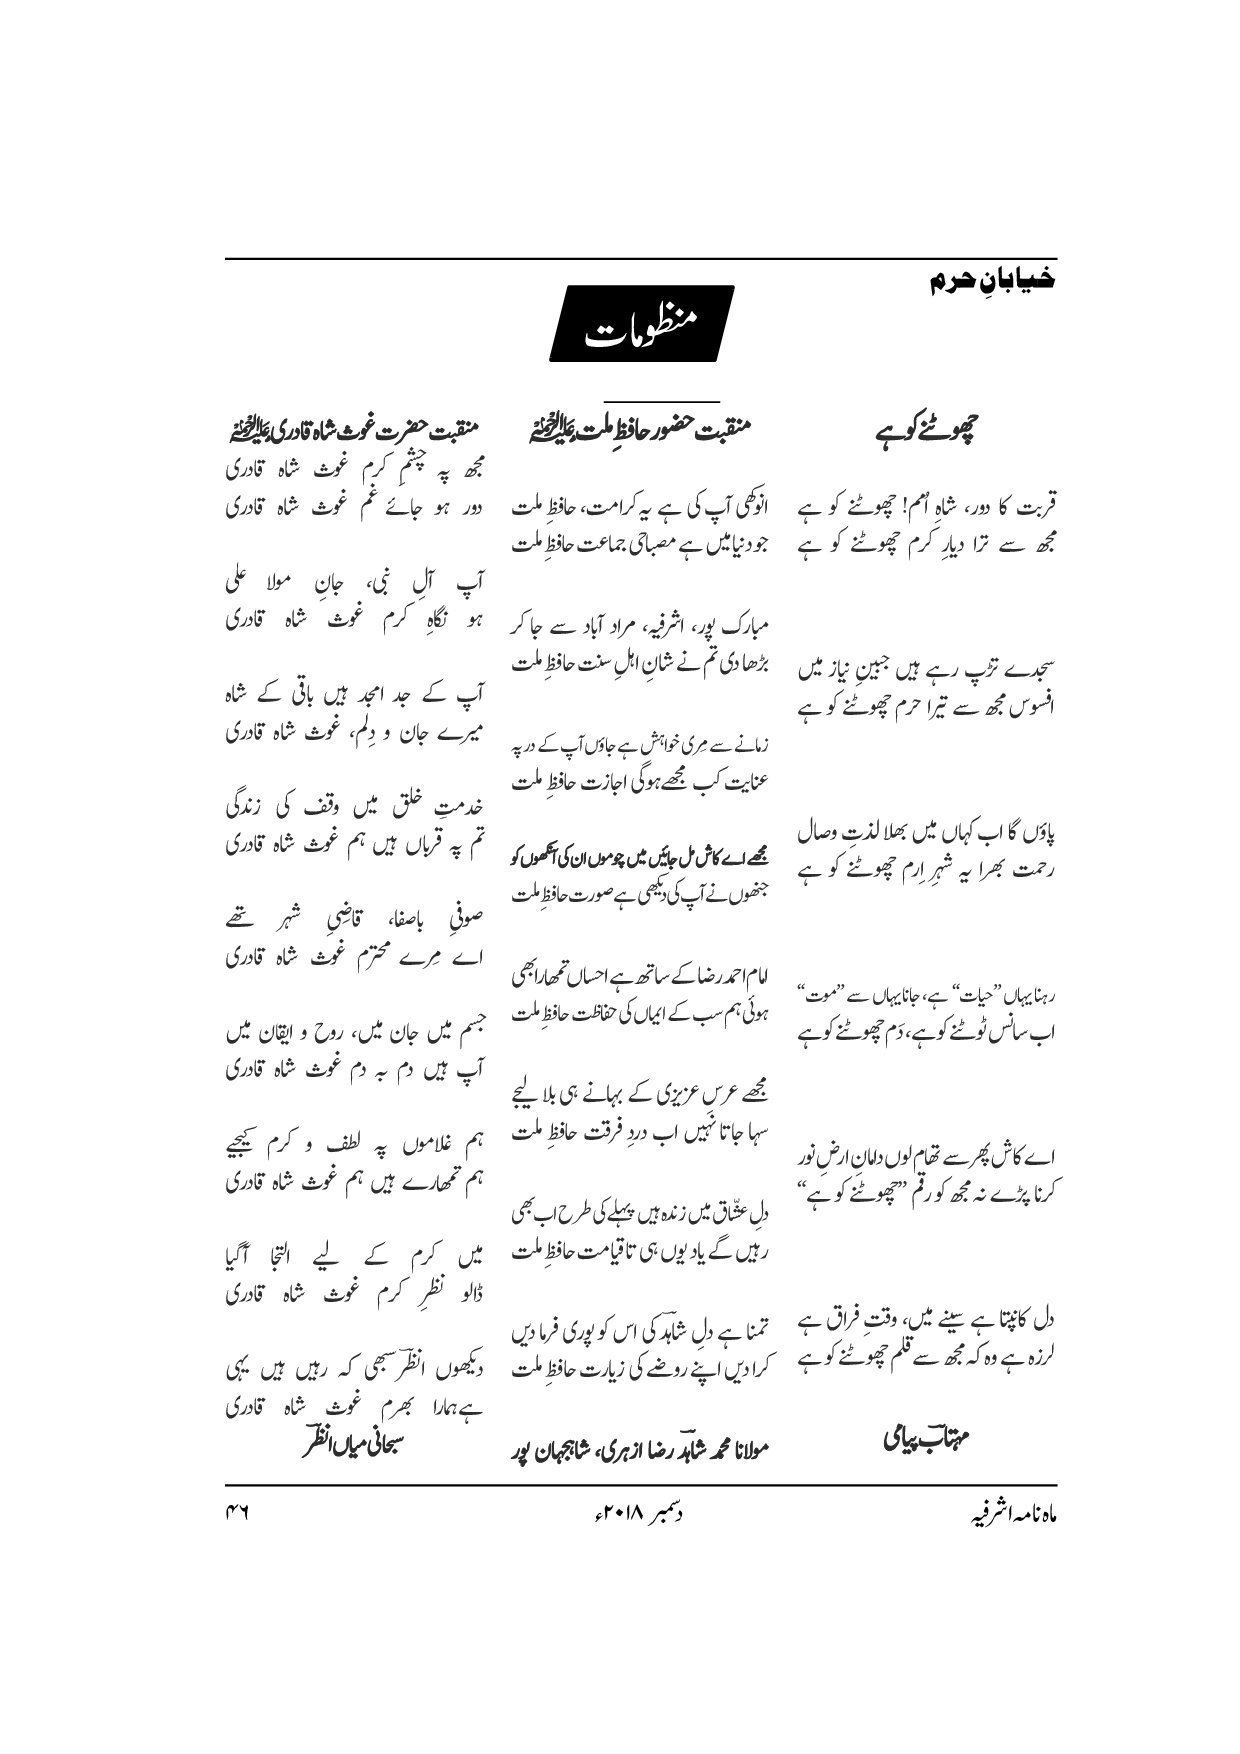 خیابانِ حرم
منظومات
چھوٹنے کو ہے
قربت کا دور، شاہِ اُمم! چھوٹنے کو ہے
مجھ سے ترا دیارِ کرم چھوٹنے کو ہے
سجدے تڑپ رہے ہیں جبینِ نیاز میں
افسوس مجھ سے تیرا حرم چھوٹنے کو ہے
پاؤں گا اب کہاں میں بھلا لذتِ وصال
رحمت بھرا یہ شہرِ اِرم چھوٹنے کو ہے
رہنا یہاں ”حیات“ ہے، جانا یہاں سے ”موت“
اب سانس ٹوٹنے کو ہے، دَم چھوٹنے کو ہے
اے کاش پھر سے تھام لوں دامانِ ارضِ نور
کرنا پڑے نہ مجھ کو رقم ”چھوٹنے کو ہے“
دل کانپتا ہے سینے میں، وقتِ فراق ہے
لرزہ ہے وہ کہ مجھ سے قلم چھوٹنے کو ہے
مہتاب پیامی
منقبت حضور حافظِ ملت علیہ الرحمہ
انوکھی آپ کی ہے یہ کرامت، حافظِ ملت
جو دنیا میں ہے مصباحی جماعت حافظِ ملت
مبارک پور، اشرفیہ، مراد آباد سے جا کر
بڑھا دی تم نے شانِ اہلِ سنت حافظِ ملت
زمانے سے مِری خواہش ہے جاؤں آپ کے در پہ
عنایت کب مجھے ہوگی اجازت حافظِ ملت
مجھے اے کاش مل جائیں میں چوموں ان کی آنکھوں کو
جنھوں نے آپ کی دیکھی ہے صورت حافظِ ملت
امام احمد رضا کے ساتھ ہے احساں تمھارا بھی
ہوئی ہم سب کے ایماں کی حفاظت حافظِ ملت
مجھے عرسِ عزیزی کے بہانے ہی بلا لیجے
سہا جاتا نہیں اب دردِ فرقت حافظِ ملت
دلِ عشّاق میں زندہ ہیں پہلے کی طرح اب بھی
رہیں گے یاد یوں ہی تا قیامت حافظِ ملت
تمنا ہے دلِ شاہدؔ کی اس کو پوری فرما دیں
کرا دیں اپنے روضے کی زیارت حافظِ ملت
مولانا محمد شاہدؔ رضا ازہری، شاہجہان پور
منقبت حضرت غوث شاہ قادری علیہ الرحمہ
مجھ پہ چشمِ کرم غوث شاہ قادری
دور ہو جائے غم غوث شاہ قادری
آپ آلِ نبی، جانِ مولا علی
ہو نگاہِ کرم غوث شاہ قادری
آپ کے جد امجد ہیں باقی کے شاہ
میرے جان و دِلم، غوث شاہ قادری
خدمتِ خلق میں وقف کی زندگی
تم پہ قرباں ہیں ہم غوث شاہ قادری
صوفیِ باصفا، قاضیِ شہر تھے
اے مِرے محترم غوث شاہ قادری
جسم میں جان میں، روح و ایقان میں
آپ ہیں دم بہ دم غوث شاہ قادری
ہم غلاموں پہ لطف و کرم کیجیے
ہم تمھارے ہیں ہم غوث شاہ قادری
میں کرم کے لیے التجا آگیا
ڈالو نظرِ کرم غوث شاہ قادری
دیکھوں انظرؔ سبھی کہ رہیں ہیں یہی
ہے ہمارا بھرم غوث شاہ قادری
سبحانی میاں انظرؔ
ماہ نامہ اشرفیہ
دسمبر ۲۰۱۸ء
۴۶